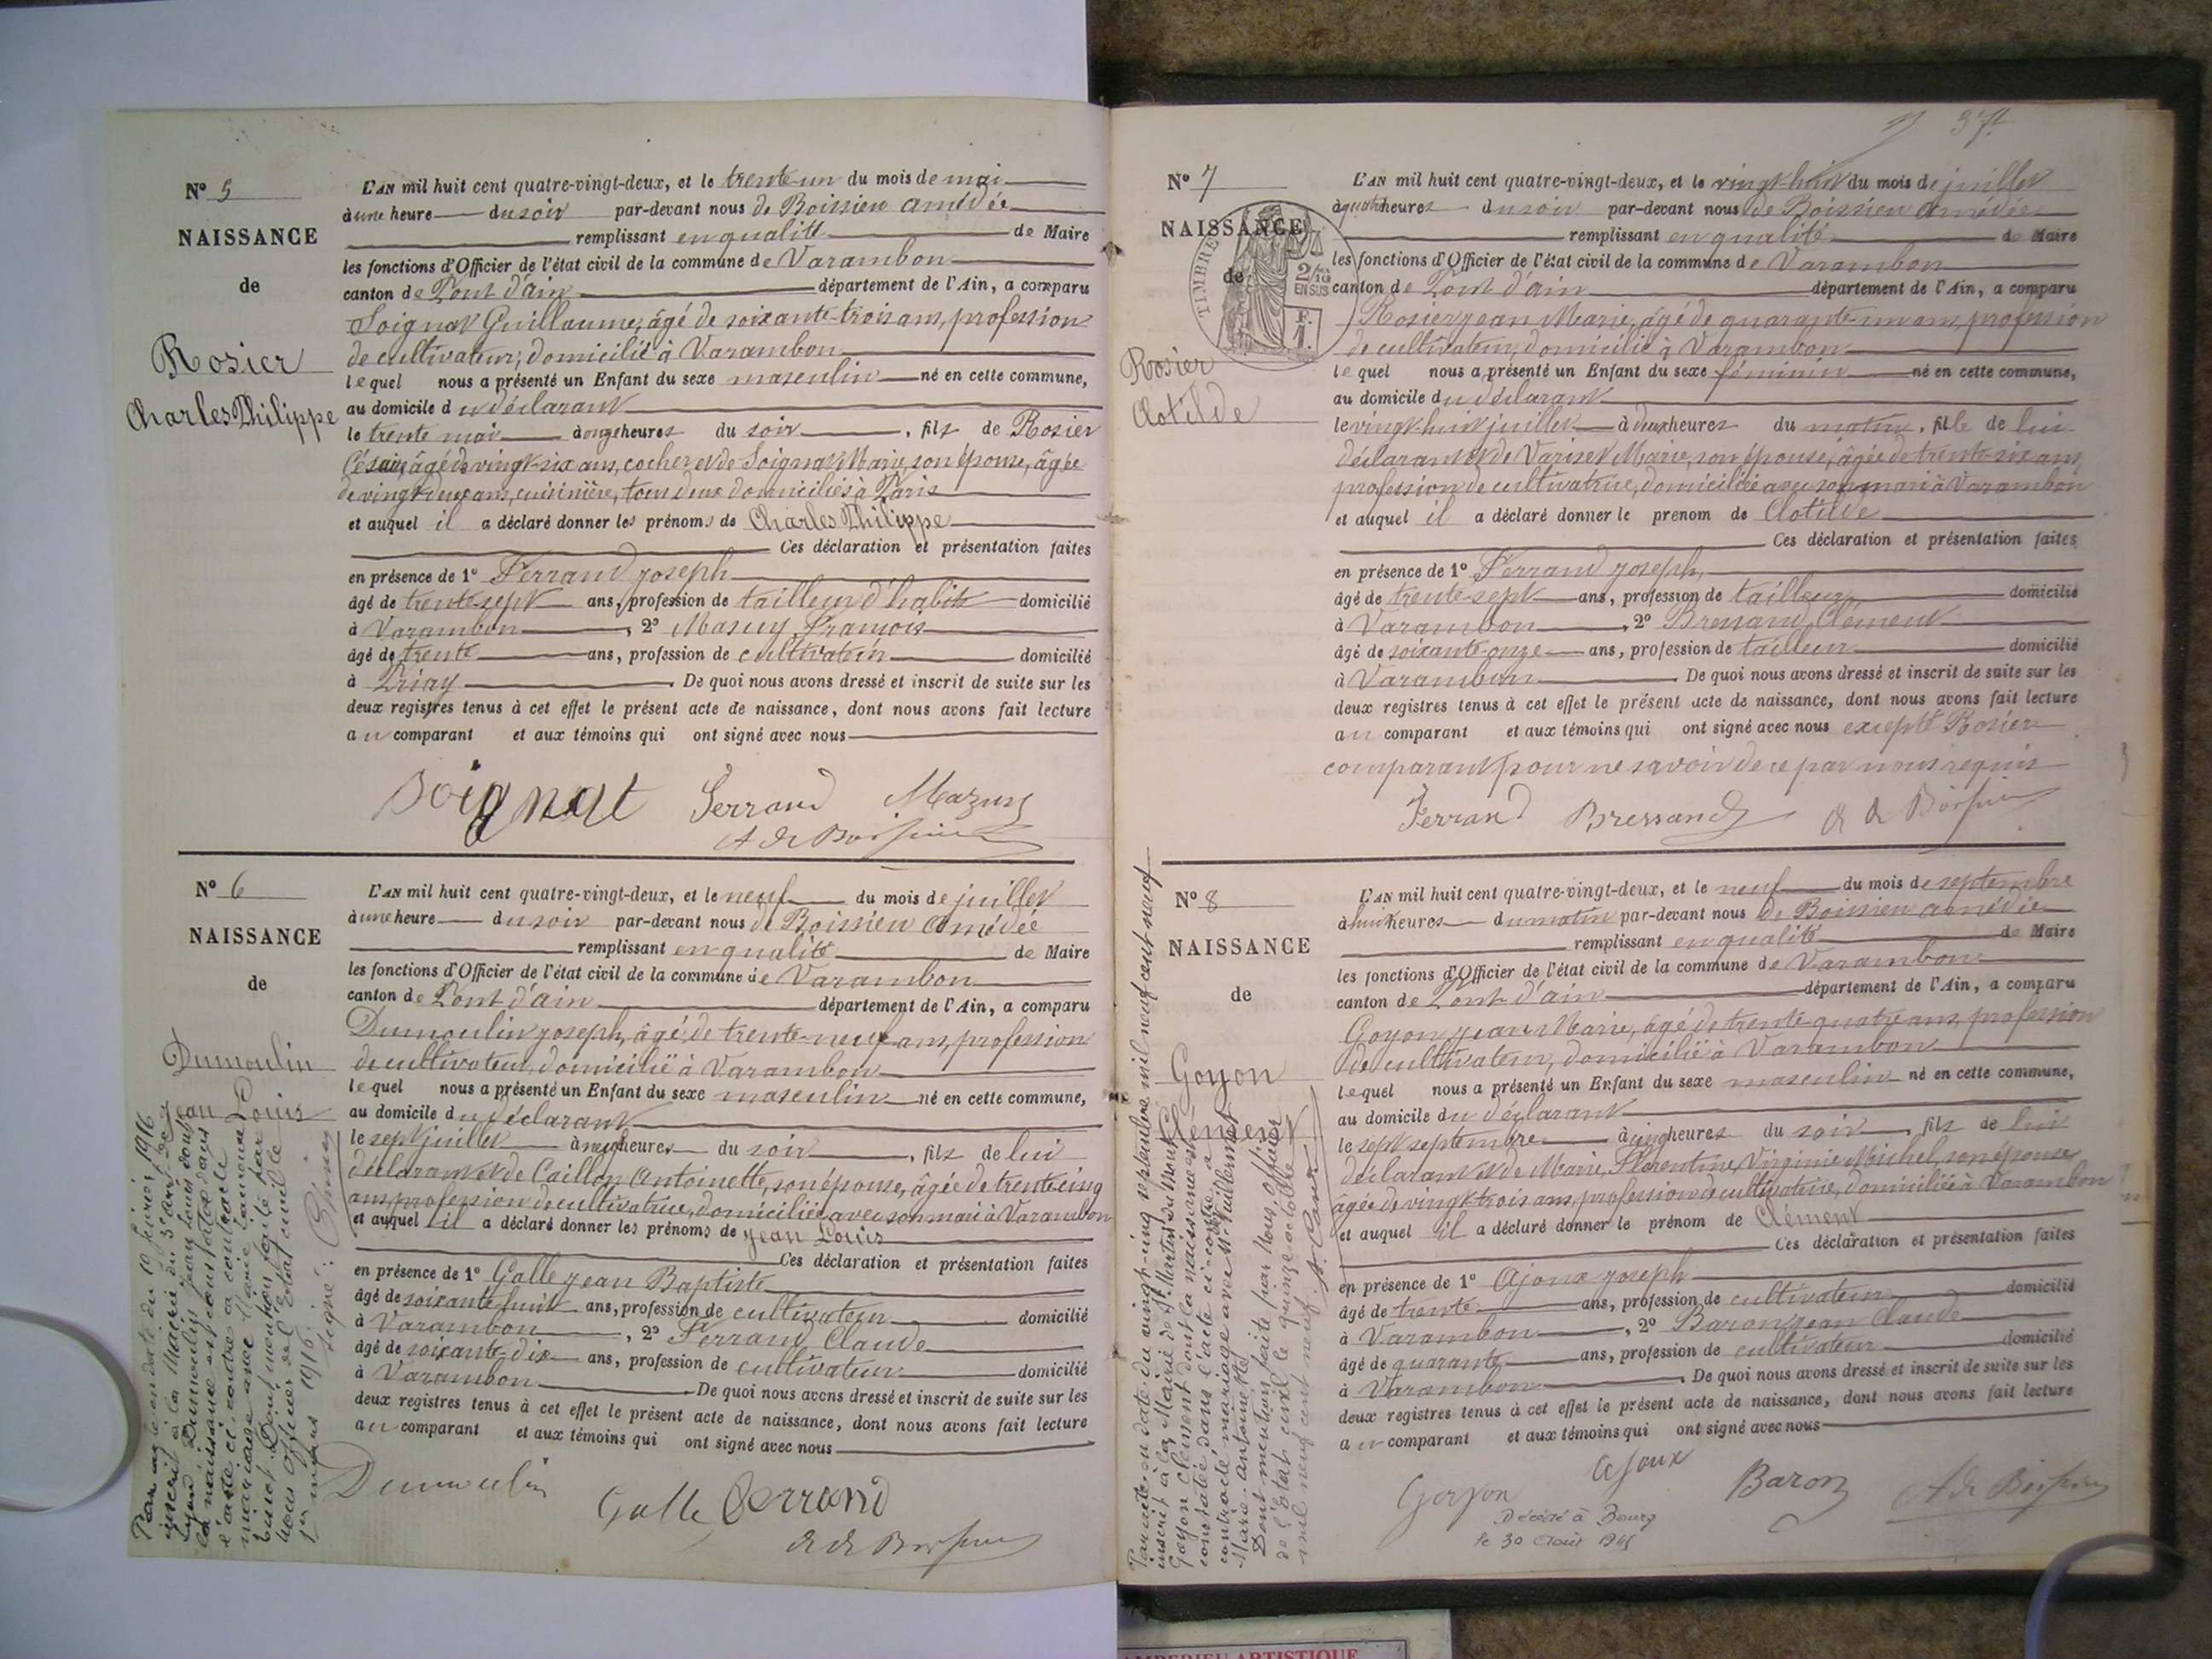 N° 5
NAISSANCE
de
Rosier
Charles Philippe
L'AN mil huit cent quatre-vingt-deux, et le trente-un du mois de mai
à une heure du soir par-devant nous de Boissieu Amédée
remplissant en qualité de Maire
les fonctions d'Officier de l'état civil de la commune de Varambon
canton de Pont d'ain département de l'Ain, a comparu
Soignat Guillaume, âgé de soixante-trois ans, profession
de cultivateur, domicilié à Varambon
lequel nous a présenté un Enfant du sexe masculin né en cette commune,
au domicile du déclarant
le trente mai à onze heures du soir, fils de Rosier
Césaire, âgé de vingt-six ans, cocher et de Soignat Marie, son épouse, âgée
de vingt-deux ans, cuisinière, tous deux domiciliés à Paris
et auquel il a déclaré donner les prénoms de Charles Philippe
Ces déclaration et présentation faites
en présence de 1° Ferrand Joseph
âgé de trente-sept ans, profession de tailleur d'habits domicilié
à Varambon, 2° Mazuy François
âgé de trente ans, profession de cultivateur domicilié
à Priay. De quoi nous avons dressé et inscrit de suite sur les
deux registres tenus à cet effet le présent acte de naissance, dont nous avons fait lecture
au comparant et aux témoins qui ont signé avec nous
Soignat Ferrand Mazuy
A de Boissieu
N° 6
NAISSANCE
de
Dumoulin
Jean Louis
L'AN mil huit cent quatre-vingt-deux, et le neuf du mois de juillet
à une heure du soir par-devant nous de Boissieu Amédée
remplissant en qualité de Maire
les fonctions d'Officier de l'état civil de la commune de Varambon
canton de Pont d'ain département de l'Ain, a comparu
Dumoulin Joseph, âgé de trente-neuf ans, profession
de cultivateur, domicilié à Varambon
lequel nous a présenté un Enfant du sexe masculin né en cette commune,
au domicile du déclarant
le sept juillet à neuf heures du soir, fils de lui
déclarant et de Caillon Antoinette, son épouse, âgée de trente-cinq
ans, profession de cultivatrice, domiciliée avec son mari à Varambon
et auquel il a déclaré donner les prénoms de Jean Louis
Ces déclaration et présentation faites
en présence de 1° Galle Jean Baptiste
âgé de soixante-huit ans, profession de cultivateur domicilié
à Varambon, 2° Ferrand Claude
âgé de soixante-dix ans, profession de cultivateur domicilié
à Varambon. De quoi nous avons dressé et inscrit de suite sur les
deux registres tenus à cet effet le présent acte de naissance, dont nous avons fait lecture
au comparant et aux témoins qui ont signé avec nous
Dumoulin Galle Ferrand
A de Boissieu
Par acte en date du 10 février 1916
inscrit à la Mairie du 3e arr de
Lyon Dumoulin Jean Louis dont
la naissance est constatée dans
l'acte ci-contre a contracté
mariage avec Marie
Dont mention faite par
nous officier de l'état civil le
1916.
signé:
37
N° 7
NAISSANCE
de
TIMBRE
2/10 EN SUS
F. 1.
Rosier
Clotilde
L'AN mil huit cent quatre-vingt-deux, et le vingt-huit du mois de juillet
à quatre heures du soir par-devant nous de Boissieu Amédée
remplissant en qualité de Maire
les fonctions d'Officier de l'état civil de la commune de Varambon
canton de Pont d'ain département de l'Ain, a comparu
Rosier Jean Marie, âgé de quarante-un ans, profession
de cultivateur, domicilié à Varambon
lequel nous a présenté un Enfant du sexe féminin né en cette commune,
au domicile du déclarant
le vingt-huit juillet à deux heures du matin, fille de lui
déclarant et de Variset Marie, son épouse, âgée de trente-six ans,
profession de cultivatrice, domiciliée avec son mari à Varambon
et auquel il a déclaré donner le prenom de Clotilde
Ces déclaration et présentation faites
en présence de 1° Ferrand Joseph,
âgé de trente-sept ans, profession de tailleur domicilié
à Varambon, 2° Bressand Clément
âgé de soixante-onze ans, profession de tailleur domicilié
à Varambon. De quoi nous avons dressé et inscrit de suite sur les
deux registres tenus à cet effet le présent acte de naissance, dont nous avons fait lecture
au comparant et aux témoins qui ont signé avec nous excepté Rosier
comparant pour ne savoir de ce par nous requis
Ferrand Bressand A de Boissieu
N° 8
NAISSANCE
de
Goyon
Clément
L'AN mil huit cent quatre-vingt-deux, et le neuf du mois de septembre
à huit heures du matin par-devant nous de Boissieu Amédée
remplissant en qualité de Maire
les fonctions d'Officier de l'état civil de la commune de Varambon
canton de Pont-d'ain département de l'Ain, a comparu
Goyon Jean Marie, âgé de trente-quatre ans, profession
de cultivateur, domicilié à Varambon
lequel nous a présenté un Enfant du sexe masculin né en cette commune,
au domicile du déclarant
le sept septembre à cinq heures du soir, fils de lui
déclarant et de Marie, Florentine, Virginie Michel, son épouse
âgée de vingt-trois ans, profession de cultivatrice, domiciliée à Varambon
et auquel il a déclaré donner le prénom de Clément
Ces déclaration et présentation faites
en présence de 1° Ajoux Joseph
âgé de trente ans, profession de cultivateur domicilié
à Varambon, 2° Baron Jean Claude
âgé de quarante ans, profession de cultivateur domicilié
à Varambon. De quoi nous avons dressé et inscrit de suite sur les
deux registres tenus à cet effet le présent acte de naissance, dont nous avons fait lecture
au comparant et aux témoins qui ont signé avec nous
Goyon Ajoux Baron A de Boissieu
Décédé à Bourg
le 30 Août
Par acte en date du vingt-cinq septembre mil neuf cent neuf
inscrit à la Mairie de St Martin du Mont
Goyon Clément dont la naissance est
constatée dans l'acte ci-contre a
contracté mariage avec Mlle Vuillermet
Marie Antoinette
Dont mention faite par Nous, Officier
de l'état civil le quinze octobre
mil neuf cent neuf.
ARTISTIQUE